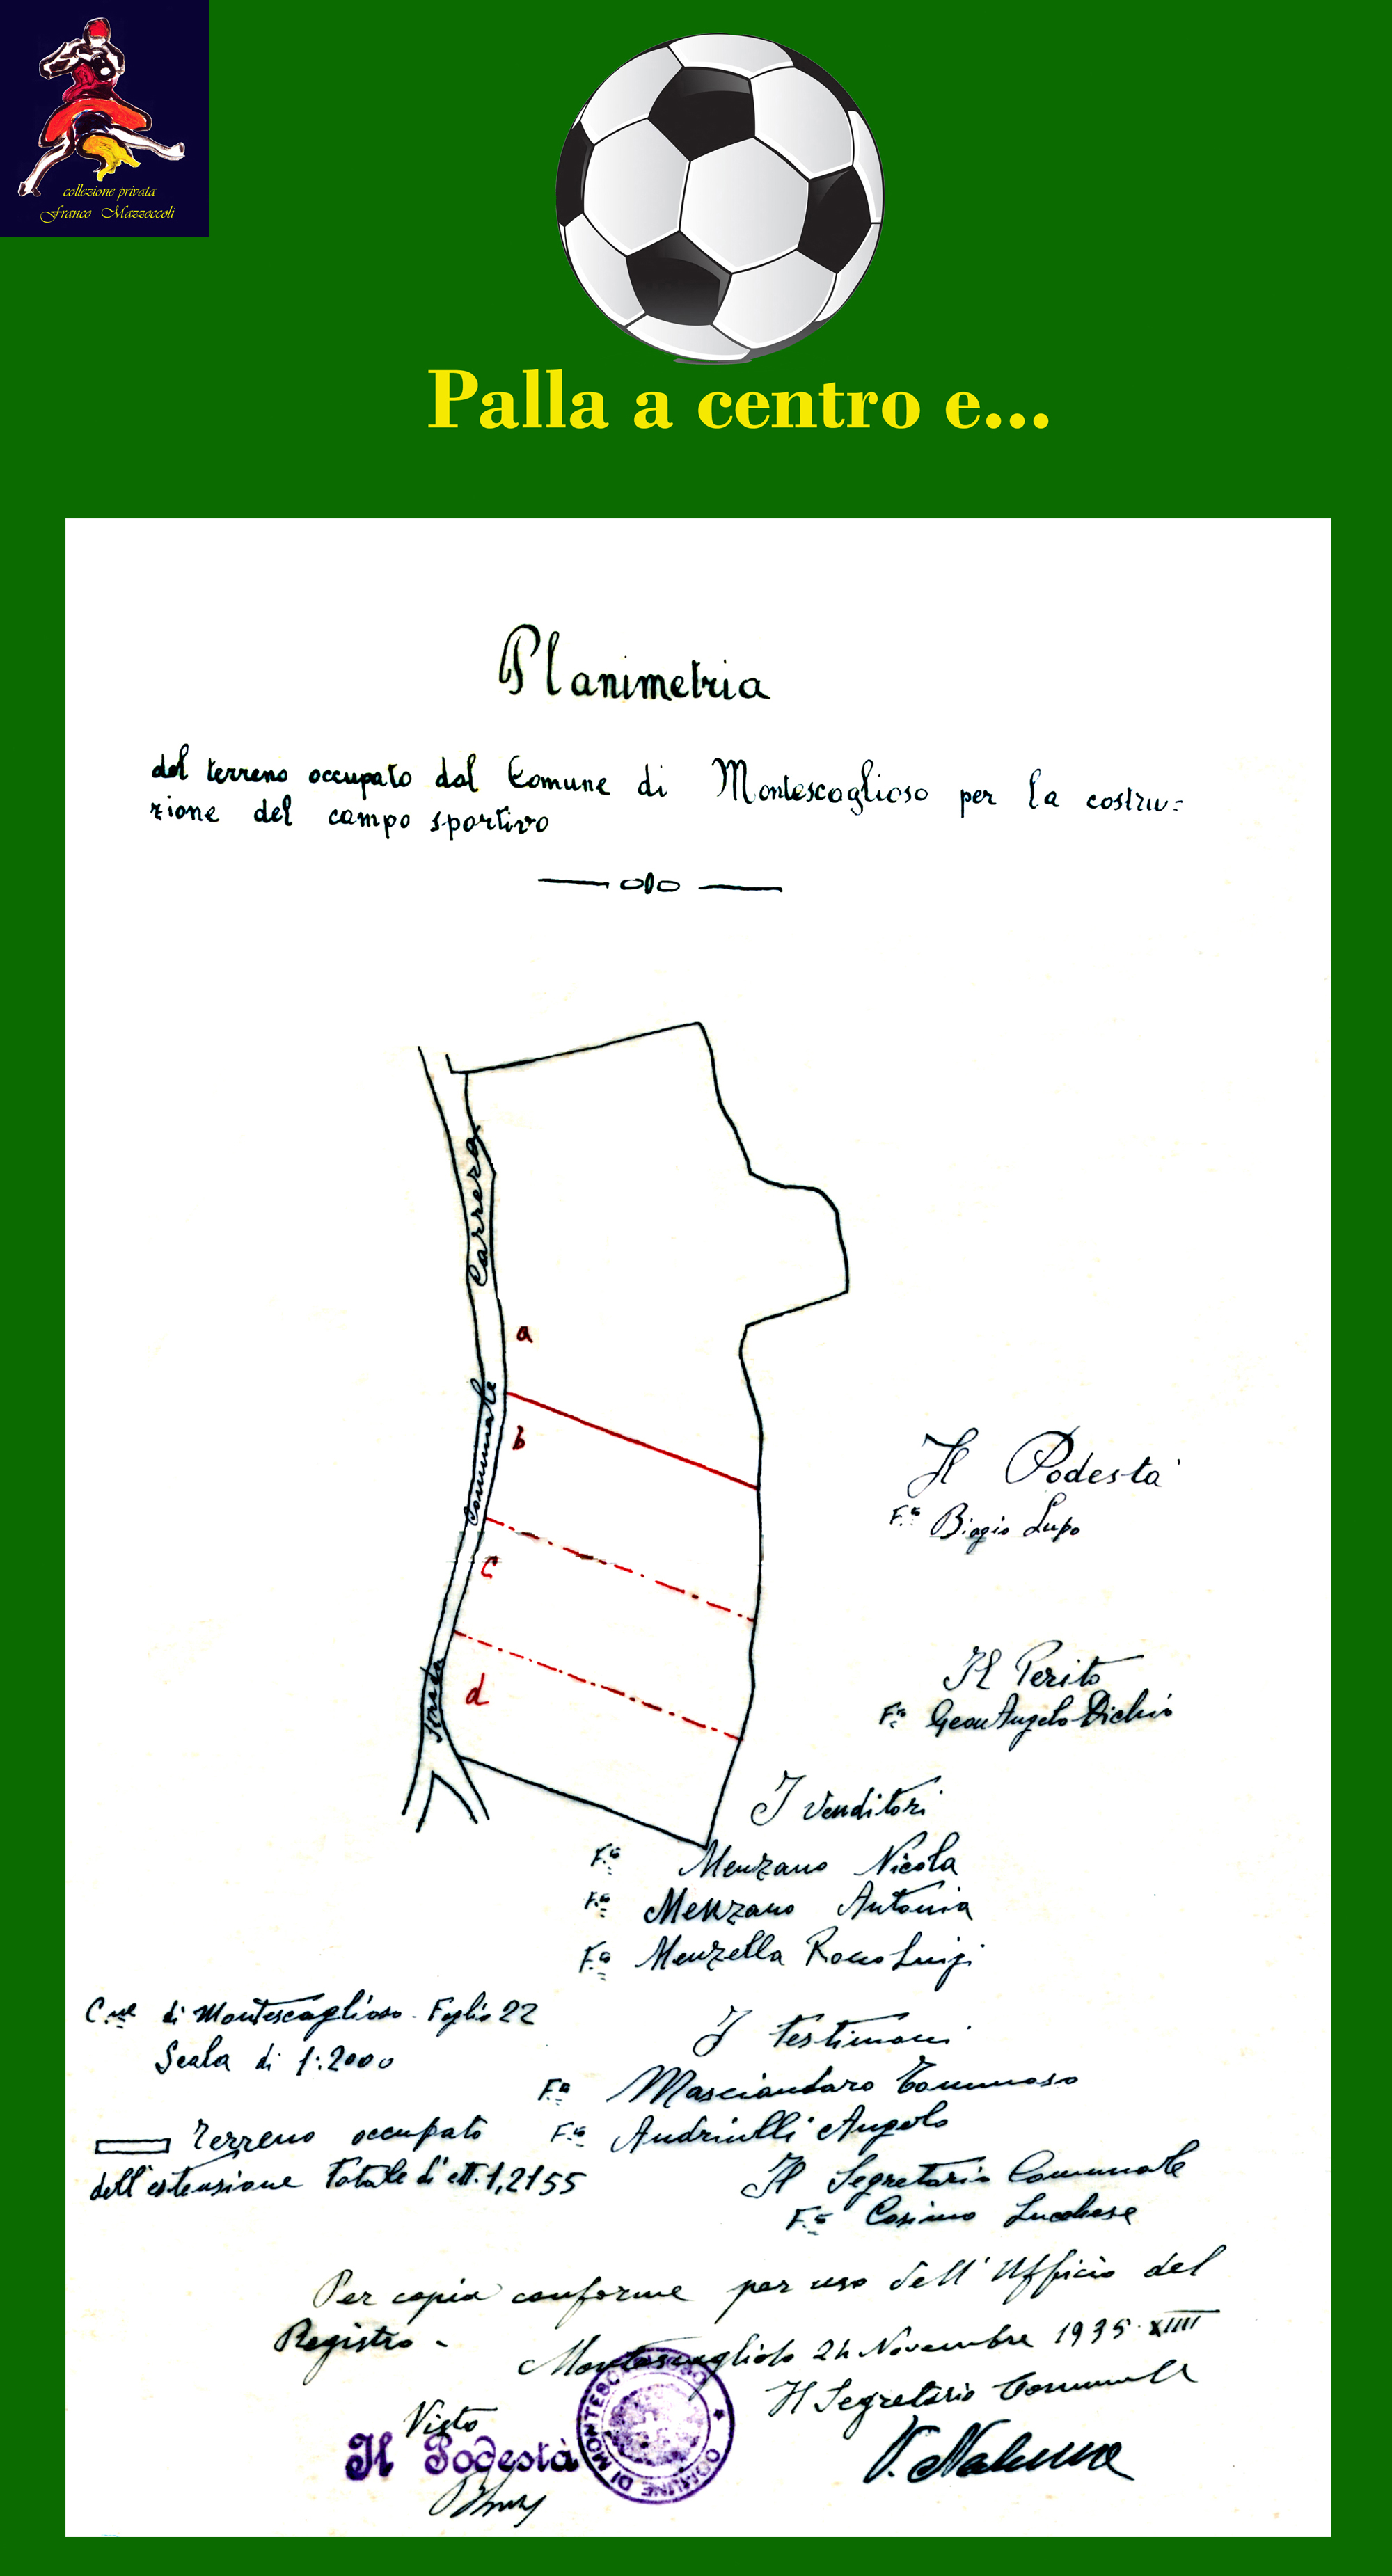 collezione privata
Franco Mazzoccoli
Palla a centro e...
Planimetria
del terreno occupato dal Comune di Montescaglioso per la costru=
zione del campo sportivo
Carrera
a
Comunale
b
c
Strada
d
Il Podestà
F.to Biagio Lupo
Il Perito
F.to Geom Angelo Dichio
I Venditori
F.to Menzano Nicola
F.to Menzano Antonia
F.to Menzella Rocco Luigi
C.ne di Montescaglioso. Foglio 22
Scala di 1:2000
I testimoni
F.to Masciandaro Tommaso
Terreno occupato
F.to Andriulli Angelo
dell'estensione totale di ett. 1,2155
Il Segretario Comunale
F.to Cosimo Lucchese
Per copia conforme per uso dell'Ufficio del
Registro -
Montescaglioso 24 Novembre 1935 XIIII
Il Segretario Comunale
Visto
Il Podestà
COMUNE DI MONTESCAGLIOSO